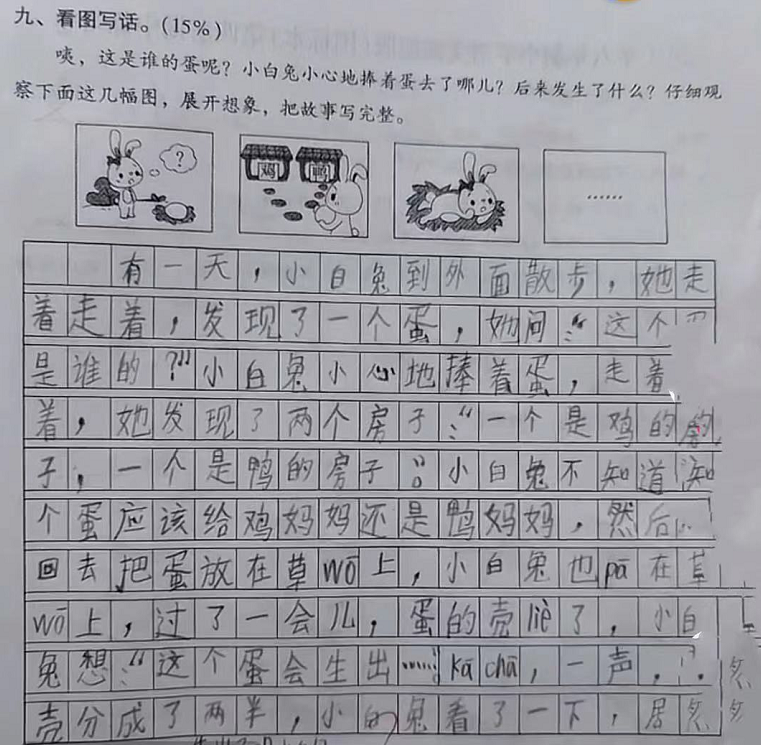 九、看图写话。(15%)
咦，这是谁的蛋呢？小白兔小心地捧着蛋去了哪儿？后来发生了什么？仔细观
察下面这几幅图，展开想象，把故事写完整。
? 鸡 鸭 ……
有一天，小白兔到外面散步，她走
着走着，发现了一个蛋，她问：“这个
是谁的？”小白兔小心地捧着蛋，走着
着，她发现了两个房子：“一个是鸡的房
子，一个是鸭的房子。”小白兔不知道
个蛋应该给鸡妈妈还是鸭妈妈，然后
回去把蛋放在草wō上，小白兔也pā在草
wō上，过了一会儿，蛋的壳liè了，小白
兔想：“这个蛋会生出……”kā chā，一声，
壳分成了两半，小白兔看了一下，居